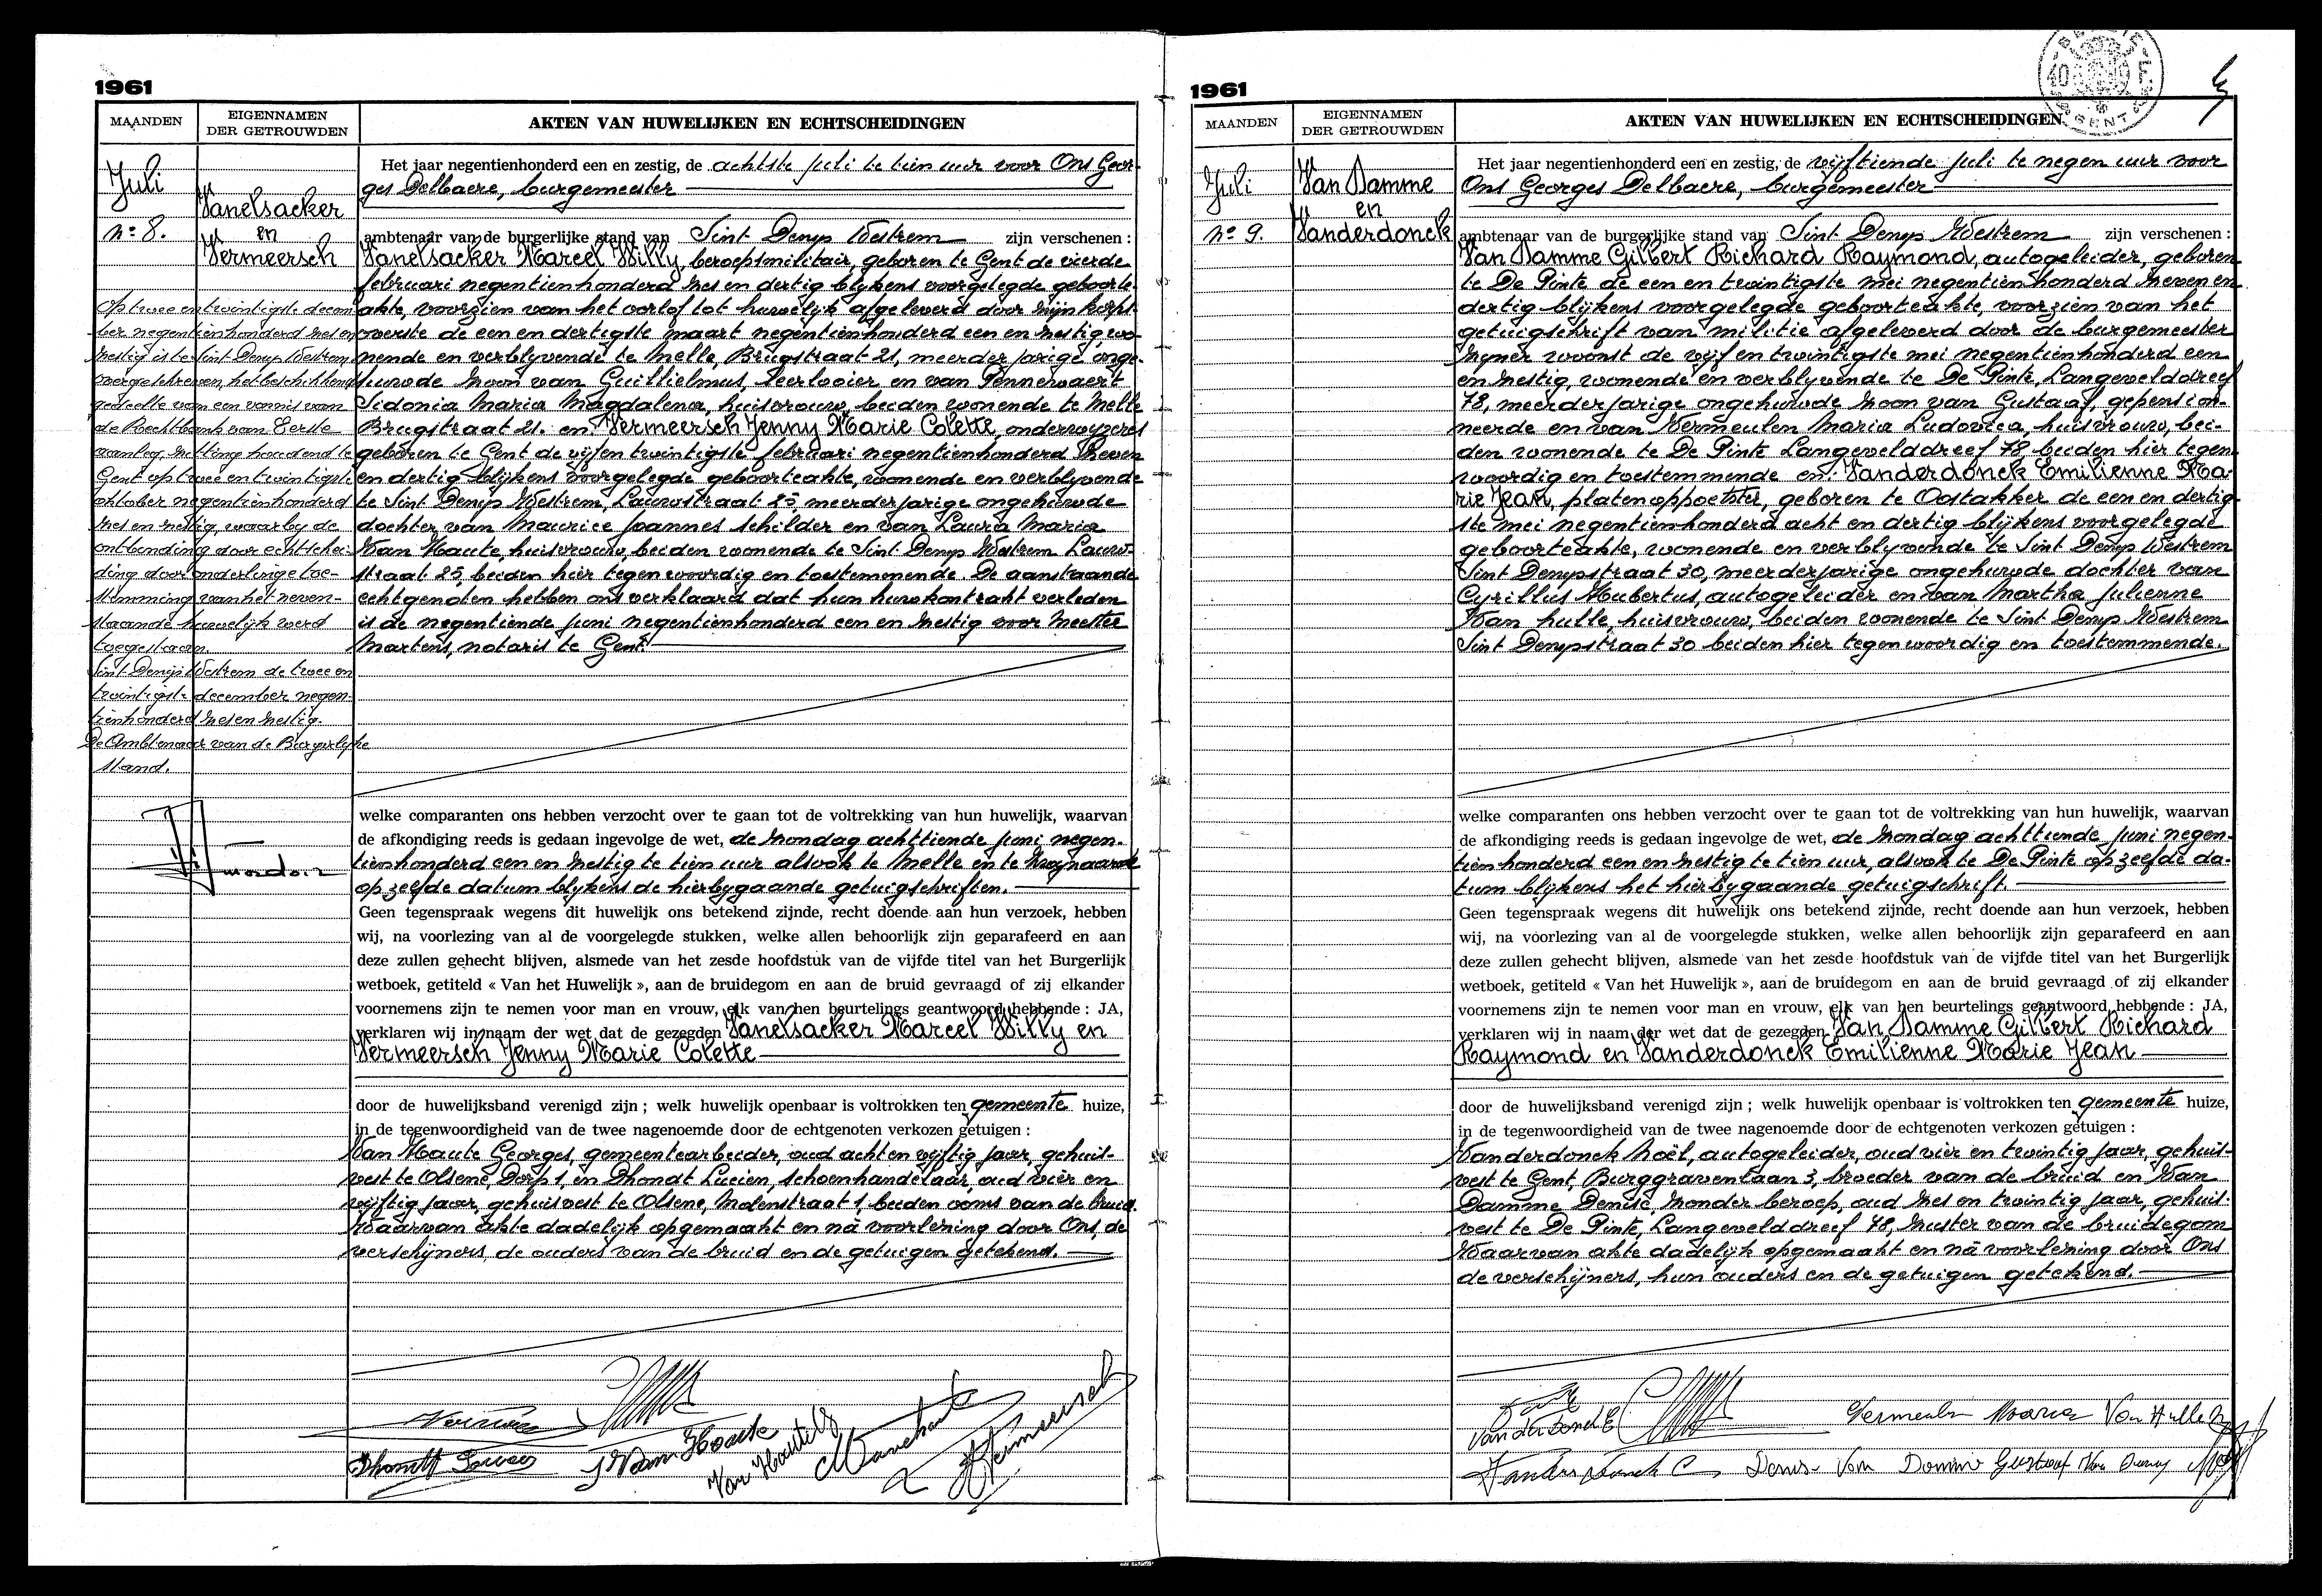 1961
MAANDEN
EIGENNAMEN
DER GETROUWDEN
AKTEN VAN HUWELIJKEN EN ECHTSCHEIDINGEN
Juli
nº 8.
Vanelsacker
en
Vermeersch
Op twee en twintigste decem
ber negentienhonderd zes en
zestig is te Sint Denys Westrem
overgeschreven, het beschikkend
gedeelte van een vonnis van
de Rechtbank van Eerste
aanleg, zitting houdend te
Gent op twee en twintigste
oktober negentienhonderd
zes en zestig, waarby de
ontbinding door echtschei-
ding door onderlinge toe-
stemming van het neven-
staande huwelijk werd
toegestaan.
Sint Denijs Westrem de twee en
twintigste december negen-
tienhonderd zes en zestig.
De Ambtenaar van de Burgerlijke
stand.
Het jaar negentienhonderd een en zestig, de achtste juli te tien uur voor Ons Geor-
ges Delbaere, burgemeester
ambtenaar van de burgerlijke stand van Sint Denys Westrem zijn verschenen :
Vanelsacker Marcel Willy, beroepsmilitair, geboren te Gent de vierde
februari negentienhonderd zes en dertig blijkens voorgelegde geboorte-
akte, voorzien van het verlof tot huwelijk afgeleverd door zijn korps-
overste de een en dertigste maart negentienhonderd een en zestig, wo-
nende en verblyvende te Melle, Brugstraat 21, meerderjarige onge-
huwde zoon van Guillielmus, leerlooier en van Pennewaert
Sidonia Maria Magdalena, huisvrouw, beiden wonende te Melle
Brugstraat 21. en Vermeersch Jenny Marie Colette, onderwyzeres
geboren te Gent de vijf en twintigste februari negentienhonderd zeven
en dertig blijkens voorgelegde geboorteakte, wonende en verblyvende
te Sint Denys Westrem, Lauwstraat 25, meerderjarige ongehuwde
dochter van Maurice Joannes schilder en van Laura Maria
Van Haute, huisvrouw, beiden wonende te Sint Denys Westrem Lauw-
straat 25 beiden hier tegenwoordig en toestemmende. De aanstaande
echtgenoten hebben ons verklaard dat hun huwkontrakt verleden
is de negentiende juni negentienhonderd een en zestig voor Meester
Martens, notaris te Gent.
welke comparanten ons hebben verzocht over te gaan tot de voltrekking van hun huwelijk, waarvan
de afkondiging reeds is gedaan ingevolge de wet, de zondag achttiende juni negen-
tienhonderd een en zestig te tien uur alsook te Melle en te Zwijnaarde
op zelfde datum blykens de hierbygaande getuigschriften.
Geen tegenspraak wegens dit huwelijk ons betekend zijnde, recht doende aan hun verzoek, hebben
wij, na voorlezing van al de voorgelegde stukken, welke allen behoorlijk zijn geparafeerd en aan
deze zullen gehecht blijven, alsmede van het zesde hoofdstuk van de vijfde titel van het Burgerlijk
wetboek, getiteld « Van het Huwelijk », aan de bruidegom en aan de bruid gevraagd of zij elkander
voornemens zijn te nemen voor man en vrouw, elk van hen beurtelings geantwoord hebbende : JA,
verklaren wij in naam der wet dat de gezegden Vanelsacker Marcel Willy en
Vermeersch Jenny Marie Colette
door de huwelijksband verenigd zijn ; welk huwelijk openbaar is voltrokken ten gemeente huize,
in de tegenwoordigheid van de twee nagenoemde door de echtgenoten verkozen getuigen :
Van Haute Georges, gemeentearbeider, oud acht en vyftig jaar, gehuis-
vest te Olsene, Dorp 1, en Dhondt Lucien, schoenhandelaar, oud vier en
vyftig jaar, gehuisvest te Olsene, Molenstraat 1, beiden ooms van de bruid.
Waarvan akte dadelijk opgemaakt en nà voorlezing door Ons, de
verschijners, de ouders van de bruid en de getuigen getekend.
Dhondt Lucien
Van Haute
Vermeersch
1961
BELGIE
10 F
GENT
MAANDEN
EIGENNAMEN
DER GETROUWDEN
AKTEN VAN HUWELIJKEN EN ECHTSCHEIDINGEN
Juli
nº 9.
Van Damme
en
Vanderdonck
Het jaar negentienhonderd een en zestig, de vyftiende juli te negen uur voor
Ons Georges Delbaere, burgemeester
ambtenaar van de burgerlijke stand van Sint Denys Westrem zijn verschenen :
Van Damme Gilbert Richard Raymond, autogeleider, geboren
te De Pinte de een en twintigste mei negentienhonderd zeven en
dertig blijkens voorgelegde geboorteakte, voorzien van het
getuigschrift van militie afgeleverd door de burgemeester
zyner woonst de vijf en twintigste mei negentienhonderd een
en zestig, wonende en verblyvende te De Pinte, Langevelddreef
78, meerderjarige ongehuwde zoon van Gustaaf, gepension-
neerde en van Vermeulen Maria Ludovica, huisvrouw, bei-
den wonende te De Pinte Langevelddreef 78 beiden hier tegen-
woordig en toestemmende en: Vanderdonck Emilienne Ma-
rie Jean, platenoppoetster, geboren te Oostakker de een en dertig-
ste mei negentienhonderd acht en dertig blijkens voorgelegde
geboorteakte, wonende en verblyvende te Sint Denys Westrem
Sint Denysstraat 30, meerderjarige ongehuwde dochter van
Cyrillus Hubertus, autogeleider en van Martha Julienne
Van hulle, huisvrouw, beiden wonende te Sint Denys Westrem
Sint Denysstraat 30 beiden hier tegenwoordig en toestemmende.
welke comparanten ons hebben verzocht over te gaan tot de voltrekking van hun huwelijk, waarvan
de afkondiging reeds is gedaan ingevolge de wet, de zondag achttiende juni negen-
tienhonderd een en zestig te tien uur, alsook te De Pinte op zelfde da-
tum blijkens het hierbygaande getuigschrift.
Geen tegenspraak wegens dit huwelijk ons betekend zijnde, recht doende aan hun verzoek, hebben
wij, na voorlezing van al de voorgelegde stukken, welke allen behoorlijk zijn geparafeerd en aan
deze zullen gehecht blijven, alsmede van het zesde hoofdstuk van de vijfde titel van het Burgerlijk
wetboek, getiteld « Van het Huwelijk », aan de bruidegom en aan de bruid gevraagd of zij elkander
voornemens zijn te nemen voor man en vrouw, elk van hen beurtelings geantwoord hebbende : JA,
verklaren wij in naam der wet dat de gezegden Van Damme Gilbert Richard
Raymond en Vanderdonck Emilienne Marie Jean
door de huwelijksband verenigd zijn ; welk huwelijk openbaar is voltrokken ten gemeente huize,
in de tegenwoordigheid van de twee nagenoemde door de echtgenoten verkozen getuigen :
Vanderdonck Noël, autogeleider, oud vier en twintig jaar, gehuis-
vest te Gent, Burggravenlaan 3, broeder van de bruid en Van
Damme Denise, zonder beroep, oud zes en twintig jaar, gehuis-
vest te De Pinte, Langevelddreef 78, zuster van de bruidegom
Waarvan akte dadelijk opgemaakt en nà voorlezing door Ons
de verschijners, hun ouders en de getuigen getekend.
Vanderdonck E
Vermeulen Maria Van Hulle
Vanderdonck C Denise Van Damme Gustaaf Van Damme